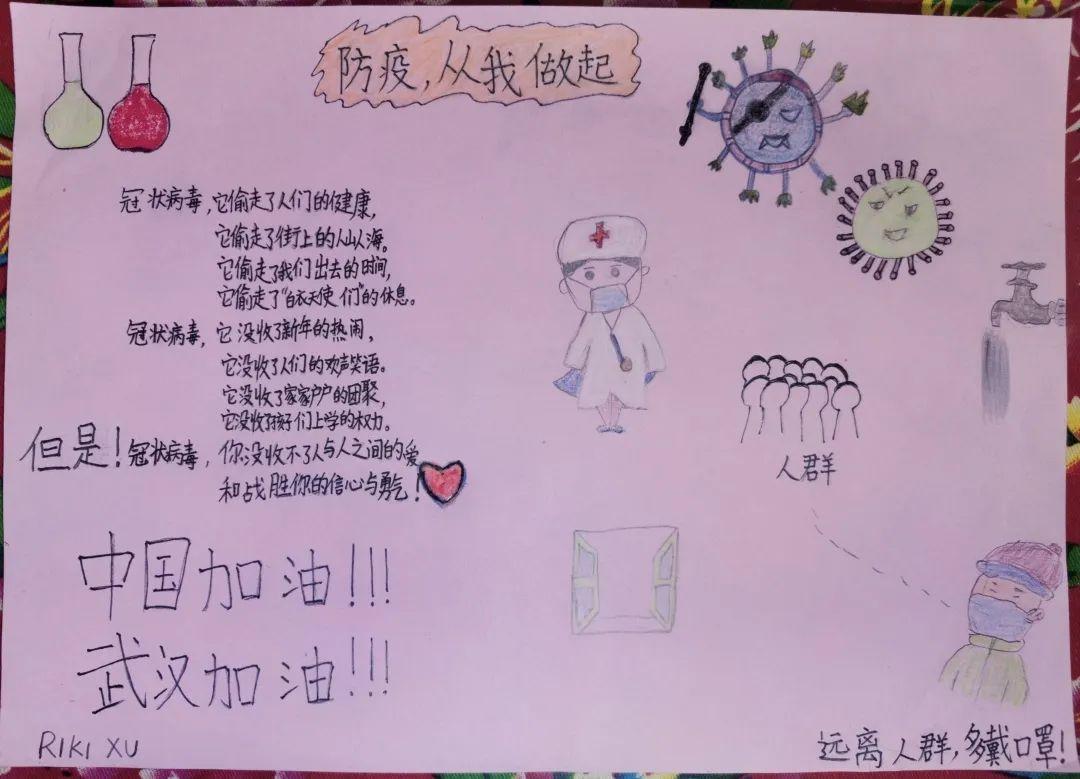 防疫，从我做起
冠状病毒，它偷走了人们的健康，
它偷走了街上的人山人海。
它偷走了我们出去的时间，
它偷走了“白衣天使们”的休息。
冠状病毒，它没收了新年的热闹，
它没收了人们的欢声笑语。
它没收了家家户户的团聚，
它没收了孩子们上学的权力。
但是！冠状病毒，你没收不了人与人之间的爱
和战胜你的信心与勇气！
中国加油!!!
武汉加油!!!
RIKI XU
人群
远离人群，多戴口罩！